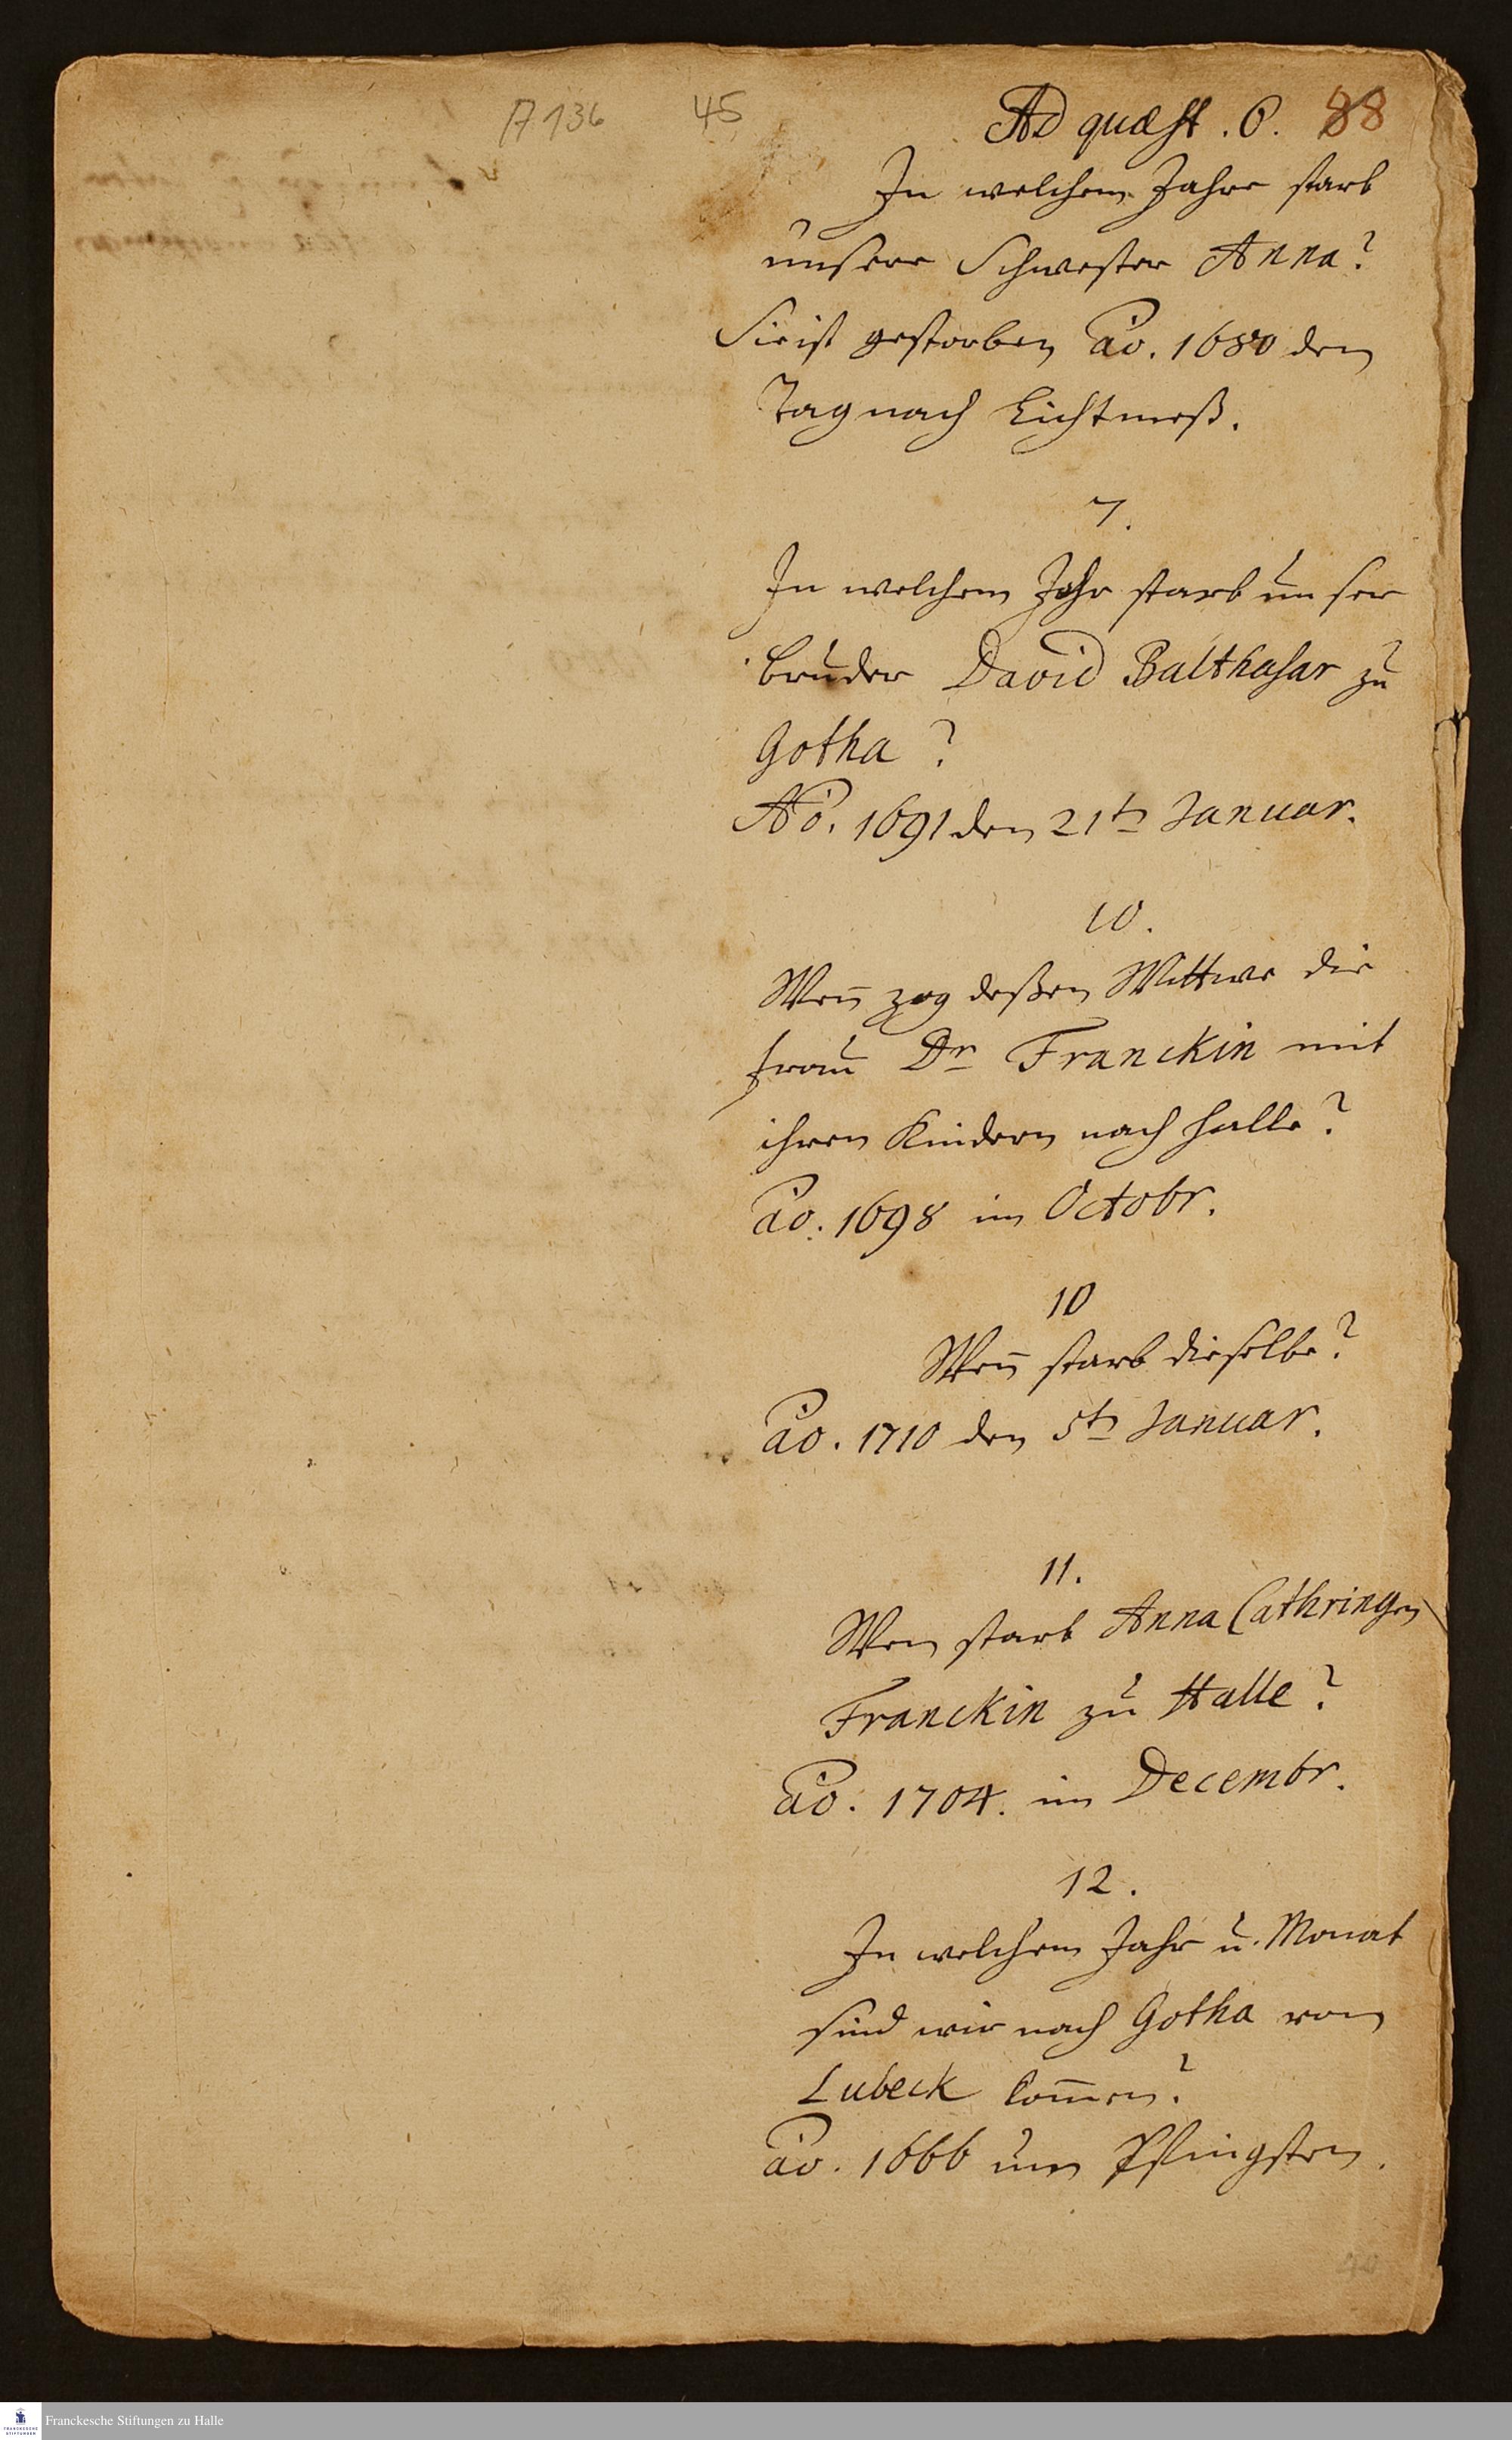 A 136 45 Ad quæst. 6. 88
In welchem Jahre starb
unsere Schwester Anna?
Sie ist gestorben Ao. 1680 den
Tag nach Lichtmeß.
7.
In welchem Jahr starb unser
bruder David Balthasar zu
Gotha?
Ao. 1691 den 21tn Januar.
10.
Wen̄ zog deßen Wittwe die
Frau Dr Franckin mit
ihren Kindern nach Halle?
ao. 1698 im Octobr.
10
Wen̄ starb dieselbe?
ao. 1710 den 5tn Januar.
11.
Wen starb Anna Cathringen
Franckin zu Halle?
ao. 1704. im Decembr.
12.
In welchem Jahr u. Monat
sind wir nach Gotha von
Lubeck kom̄en?
ao. 1666 um Pfingsten.
FRANCKESCHE
STIFTUNGEN
Franckesche Stiftungen zu Halle